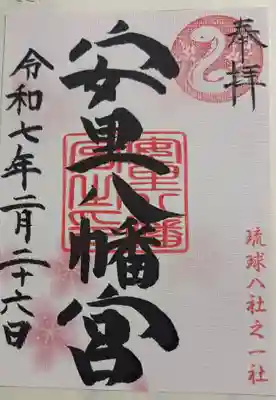 奉拝
琉球八社之一社
安里八幡宮
安里八幡宮之印
令和七年二月二十六日